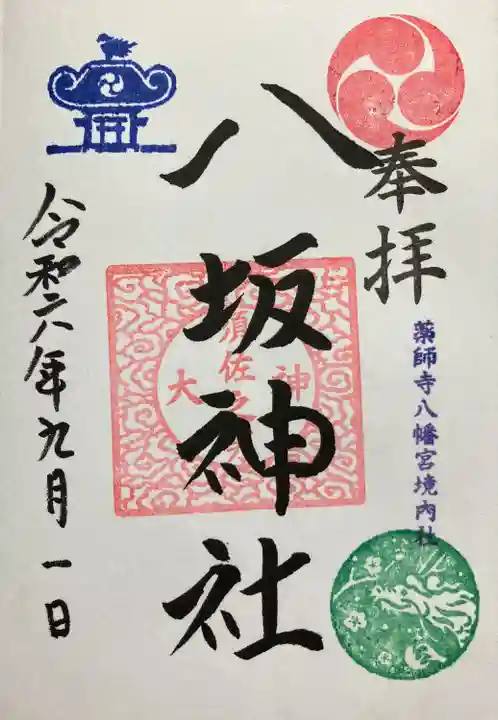 奉拝
薬師寺八幡宮境内社
八坂神社
須佐之
大神
令和六年九月一日